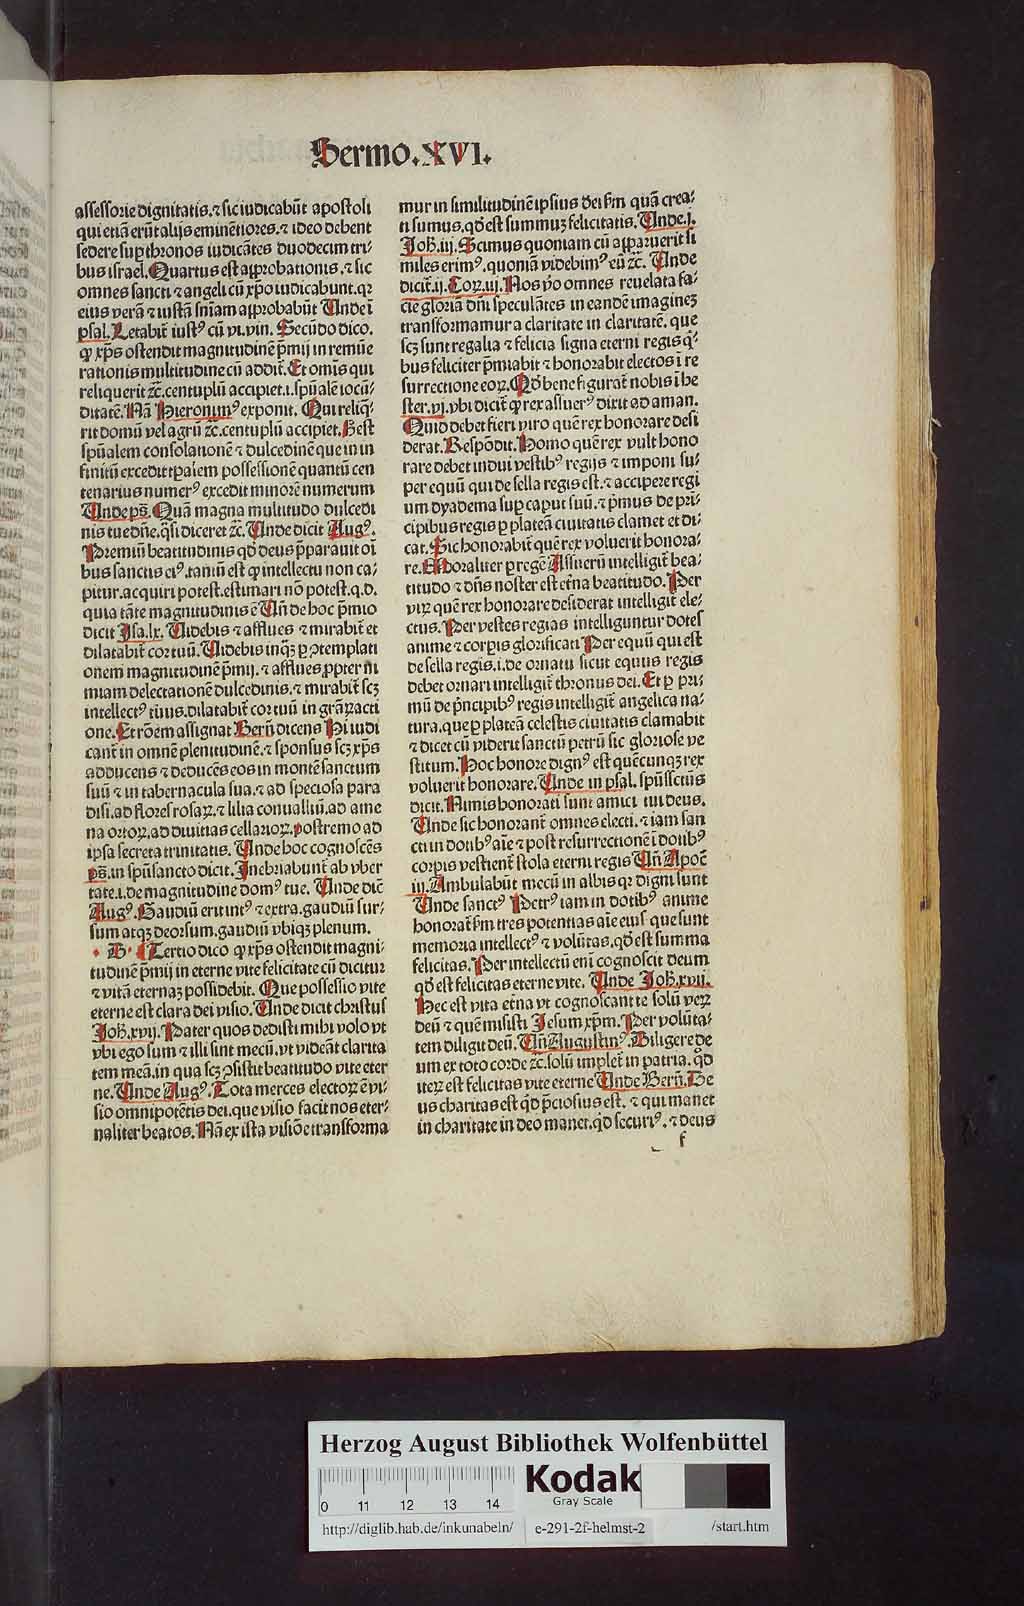 Sermo.XVI.
assessorie dignitatis.⁊ sic iudicabūt apostoli
qui etiā erūt alijs eminētiores.⁊ ideo debent
sedere sup thronos iudicātes duodecim tri-
bus israel.Quartus est approbationis.⁊ sic
omnes sancti ⁊ angeli cū xp̄o iudicabunt.qꝛ
eius verā ⁊ iustā sn̄iam approbabūt Unde ī
psal.Letabit̄ iustꝰ cū vi.vin. Secūdo dico.
ꝙ xp̄s ostendit magnitudinē p̄mij in remūe
rationis multitudine cū addit̄.Et omīs qui
reliquerit ⁊c̄.centuplū accipiet.i.spūalē iocū-
ditatē.Nā Hieronimꝰ exponit. Qui reliq̄-
rit domū vel agrū ⁊c̄.centuplū accipiet.Hest
spūalem consolationē ⁊ dulcedinē que in in
finitū excedit tp̄alem possessionē quantū cen
tenarius numerꝰ excedit minorē numerum
Unde ps̄.Quā magna multitudo dulcedi
nis tue dn̄e.q̄si diceret ⁊c̄.Unde dicit Augꝰ.
Premiū beatitudinis qd̄ deus p̄parauit oī
bus sanctis eiꝰ.tantū est ꝙ intellectu non ca-
pitur.acquiri potest.estimari nō potest.q.d.
quia tāte magnitudinis ē Un̄ de hoc p̄mio
dicit Isa.lx. Uidebis ⁊ afflues ⁊ mirabit̄ et
dilatabit̄ coꝛ tuū.Uidebis inqꝫ ꝑ ꝯtemplati
onem magnitudinē p̄mij.⁊ afflues ꝓpter ni
miam delectationē dulcedinis.⁊ mirabit̄ scꝫ
intellectꝰ tuus.dilatabit̄ coꝛ tuū in grāꝝ acti
one.Et rōem assignat Bern̄ dicens Hi iudi
cant̄ in omnē plenitudinē.⁊ sponsus scꝫ xp̄s
adducens ⁊ deducēs eos in montē sanctum
suū ⁊ in tabernacula sua.⁊ ad speciosa para
disi.ad flores rosaꝝ.⁊ lilia conualliū.ad ame
na oꝛtoꝝ.ad diuitias cellarioꝝ.postremo ad
ipsa secreta trinitatis. Unde hoc cognoscēs
ps̄.in spūsancto dicit. Inebriabunt̄ ab vber
tate.i.de magnitudine domꝰ tue. Unde dic̄
Augꝰ.Gaudiū erit intꝰ ⁊ extra.gaudiū sur-
sum atqꝫ deorsum.gaudiū vbiqꝫ plenum.
B Tertio dico ꝙ xp̄s ostendit magni-
tudinē p̄mij in eterne vite felicitate cū dicitur
⁊ vitā eternaꝫ possidebit. Que possessio vite
eterne est clara dei visio.Unde dicit christus
Joh̄.xvij. Pater quos dedisti mihi volo vt
vbi ego sum ⁊ illi sint mecū.vt videāt clarita
tem meā.in qua scꝫ ꝯsistit beatitudo vite eter
ne. Unde Augꝰ.Tota merces electoꝝ ē vi-
sio omnipotētis dei.que visio facit nos eter-
naliter beatos.Nā ex ista visiōe transforma
mur in similitudinē ipsius dei fm̄ quā crea-
ti sumus.qd̄ est summuꝫ felicitatis.Unde.j.
Joh̄.iij.Scimus quoniam cū apparuerit si
miles erimꝰ.quoniā videbimꝰ eū ⁊c̄. Unde
dicit̄.ij.Coꝝ.iij.Nos v̄o omnes reuelata fa-
cie gloriā dn̄i speculātes in eandē imagineꝫ
transformamur a claritate in claritatē.que
scꝫ sunt regalia ⁊ felicia signa eterni regis q̄-
bus feliciter p̄miabit ⁊ honorabit electos ī re
surrectione eoꝝ.Qd̄ bene figurat̄ nobis ī he
ster.vj.vbi dicit̄ ꝙ rex assuerꝰ dixit ad aman.
Quid debet fieri viro quē rex honorare desi
derat.Respōdit.Homo quē rex vult hono
rare debet indui vestibꝰ regijs ⁊ imponi su-
per equū qui de sella regis est.⁊ accipere regi
um dyadema sup caput suū.⁊ p̄mus de pri-
cipibus regis ꝑ plateā ciuitatis clamet et di-
cat.Sic honorabit̄ quē rex voluerit honora-
re.Moraliter ꝑ regē Assuerū intelligit̄ bea-
titudo ⁊ dn̄s noster est et̄na beatitudo. Per
viꝝ quē rex honorare desiderat intelligit̄ ele-
ctus.Per vestes regias intelliguntur dotes
anime ⁊ coꝛpis glorificati Per equū qui est
de sella regis.i.de ornatu sicut equus regis
debet ornari intelligit̄ thronus dei.Et ꝑ pri-
mū de p̄ncipibꝰ regis intelligit̄ angelica na-
tura.que ꝑ plateā celestis ciuitatis clamabit
⁊ dicet cū viderit sanctū petrū sic gloriose ve
stitum.Hoc honore dignꝰ est quēcunqꝫ rex
voluerit honorare.Unde in psal.spūssctūs
dicit.Nimis honorati sunt amici tui deus.
Unde sic honorant̄ omnes electi.⁊ iam san
cti in dotibꝰ aīe ⁊ post resurrectionē ī dotibꝰ
coꝛpis vestient̄ stola eterni regis Un̄ Apoc̄
iij.Ambulabūt mecū in albis qꝛ digni sunt
Unde sanctꝰ Petrꝰ iam in dotibꝰ anime
honorat̄ fm̄ tres potentias aīe eius que sunt
memoria intellectꝰ ⁊ volūtas.qd̄ est summa
felicitas.Per intellectū enī cognoscit deum
qd̄ est felicitas eterne vite. Unde Joh̄.xvij.
Hec est vita et̄na vt cognoscant te solū veꝝ
deū ⁊ quē misisti Jesum xp̄m.Per volūta-
tem diligit deū.Un̄ Augustinꝰ.Diligere de
um ex toto coꝛde ⁊c̄.solū implet̄ in patria.qd̄
iteꝝ est felicitas vite eterne Unde Bern̄.De
us charitas est qd̄ p̄ciosius est.⁊ qui manet
in charitate in deo manet.qd̄ securiꝰ.⁊ deus
f
Herzog August Bibliothek Wolfenbüttel
0 11 12 13 14
Kodak
Gray Scale
http://diglib.hab.de/inkunabeln/ e-291-2f-helmst-2 /start.htm